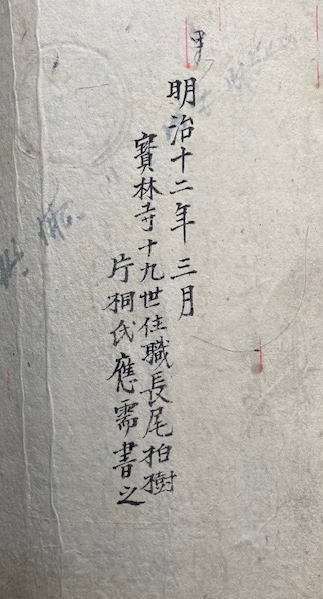 明治十二年三月
寳林寺十九世住職長尾柏樹
片桐氏應需書之